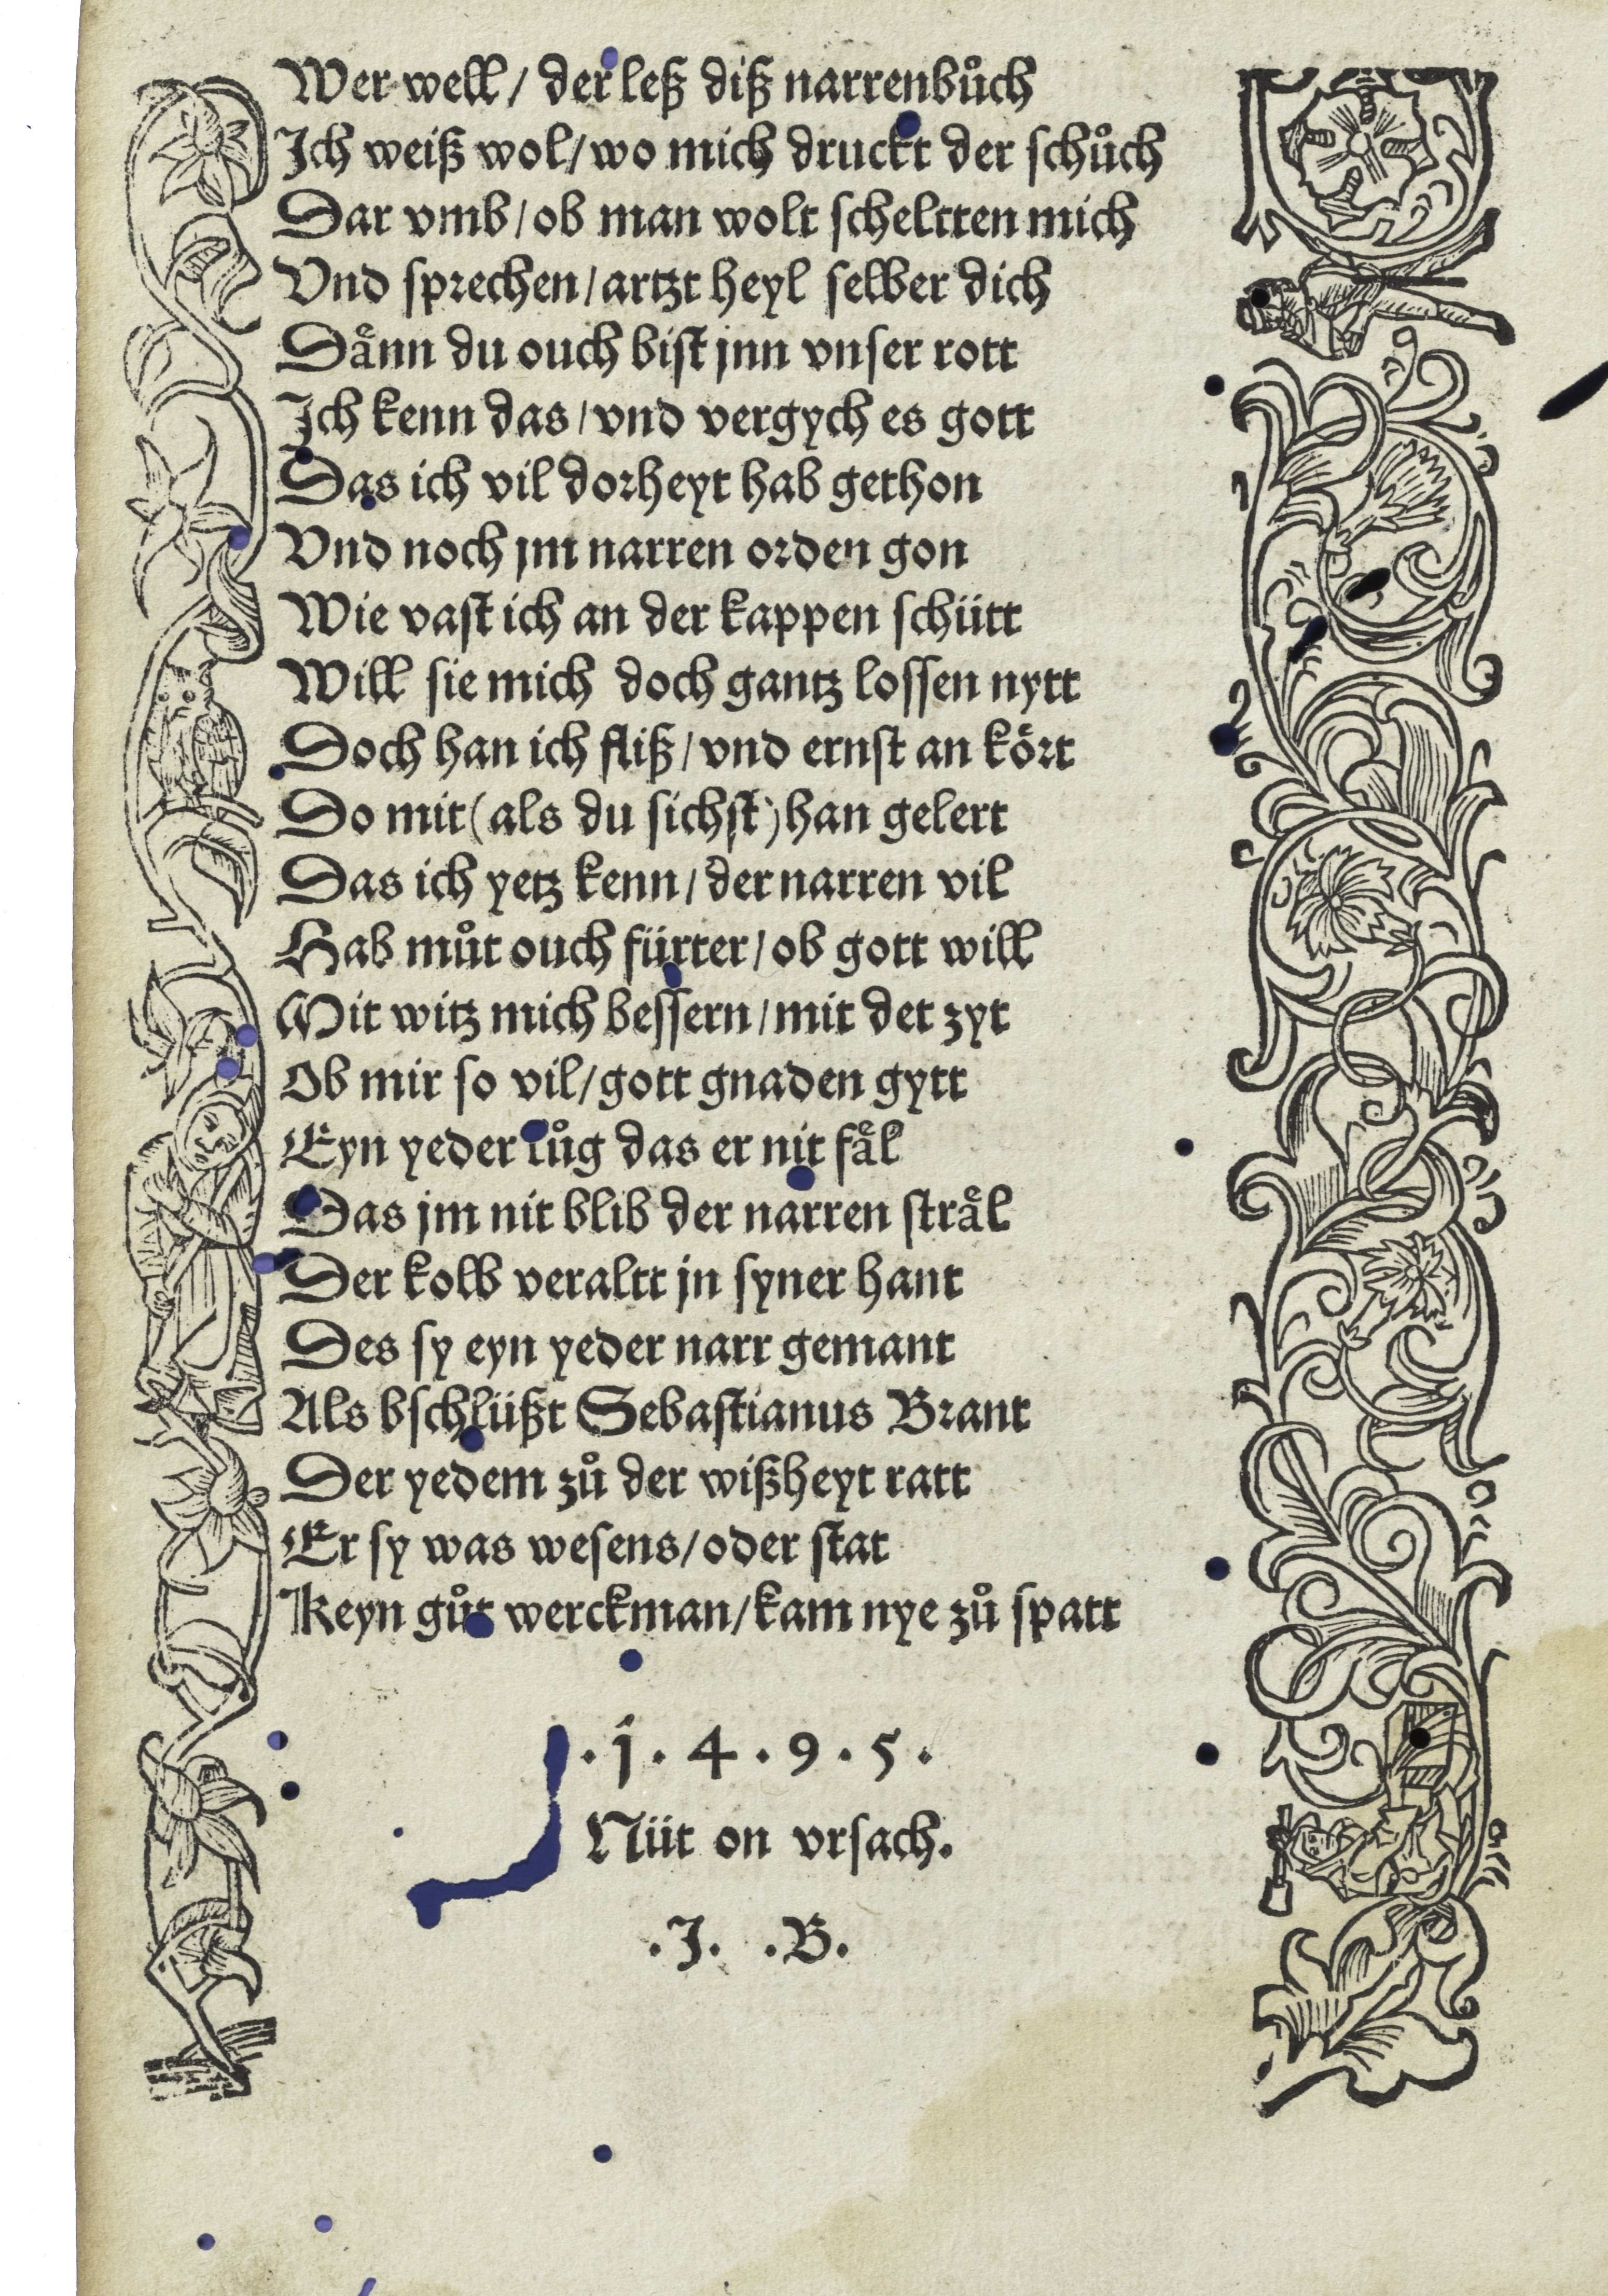 Wer well/ der leß diß narrenbůch
Ich weiß wol/wo mich druckt der schůch
Dar vmb/ob man wolt scheltten mich
Vnd sprechen/artzt heyl selber dich
Daͤnn du ouch bist jnn vnser rott
Ich kenn das/vnd vergych es gott
Das ich vil dorheyt hab gethon
Vnd noch jm narren orden gon
Wie vast ich an der kappen schütt
Will sie mich doch gantz lossen nytt
Doch han ich fliß/vnd ernst an koͤrt
Do mit(als du sichst)han gelert
Das ich yetz kenn/der narren vil
Hab můt ouch fürter/ob gott will
Mit witz mich bessern/mit det zyt
Ob mir so vil/gott gnaden gytt
Eyn yeder lůg das er nit faͤl
Das jm nit blib der narren straͤl
Der kolb veraltt jn syner hant
Des sy eyn yeder narr gemant
Als bschlüßt Sebastianus Brant
Der yedem zů der wißheyt ratt
Er sy was wesens/oder stat
Keyn gůt werckman/kam nye zů spatt
.1.4.9.5.
Nüt on vrsach.
.J. .B.